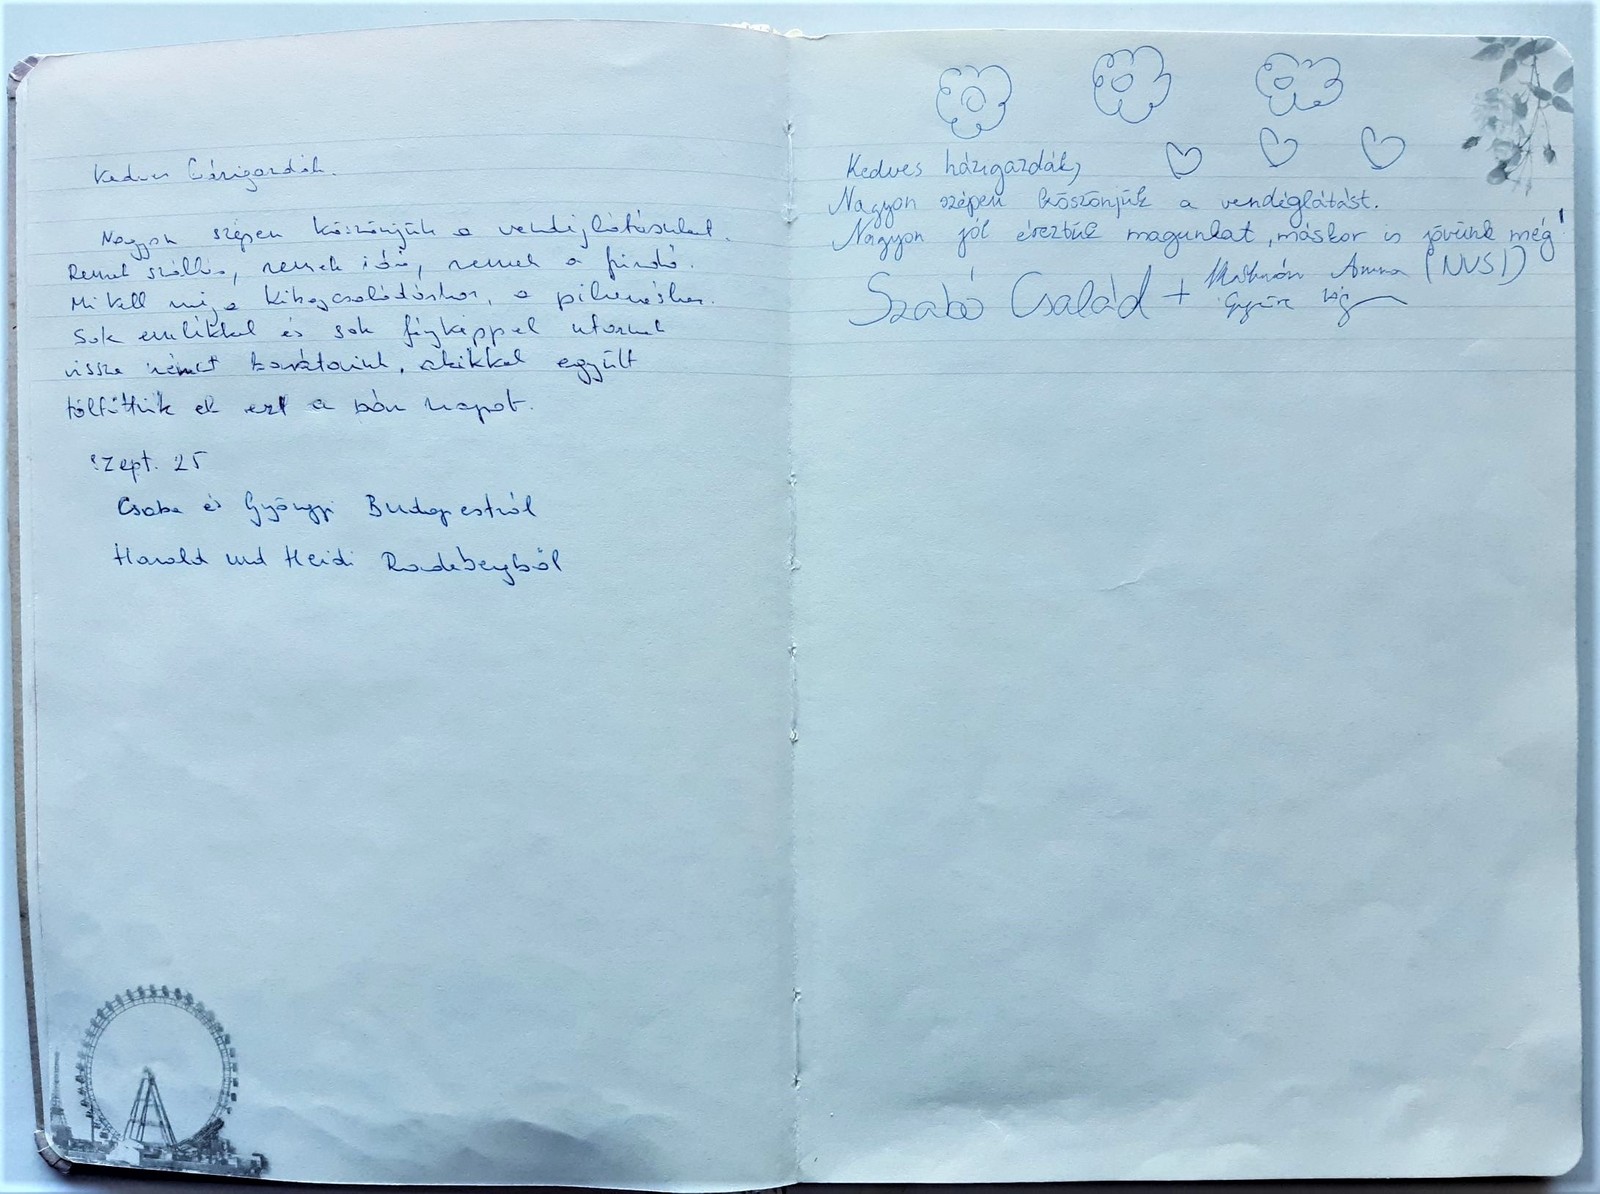 Kedves Házigazdák.
Nagyon szépen köszönjük a vendéglátásukat.
Remek szállás, remek idő, remek a fürdő.
Mi kell még a kikapcsolódáshoz, a pihenéshez.
Sok emlékkel és sok fényképpel utaznak
vissza német barátaink, akikkel együtt
töltöttük el ezt a pár napot.
Szept. 25
Csaba és Gyöngyi Budapestről
Harald und Heidi Radebergből
Kedves házigazdák,
Nagyon szépen köszönjük a vendéglátást.
Nagyon jól éreztük magunkat, máskor is jövünk még!
Szabó Család + Anna (NVSI)